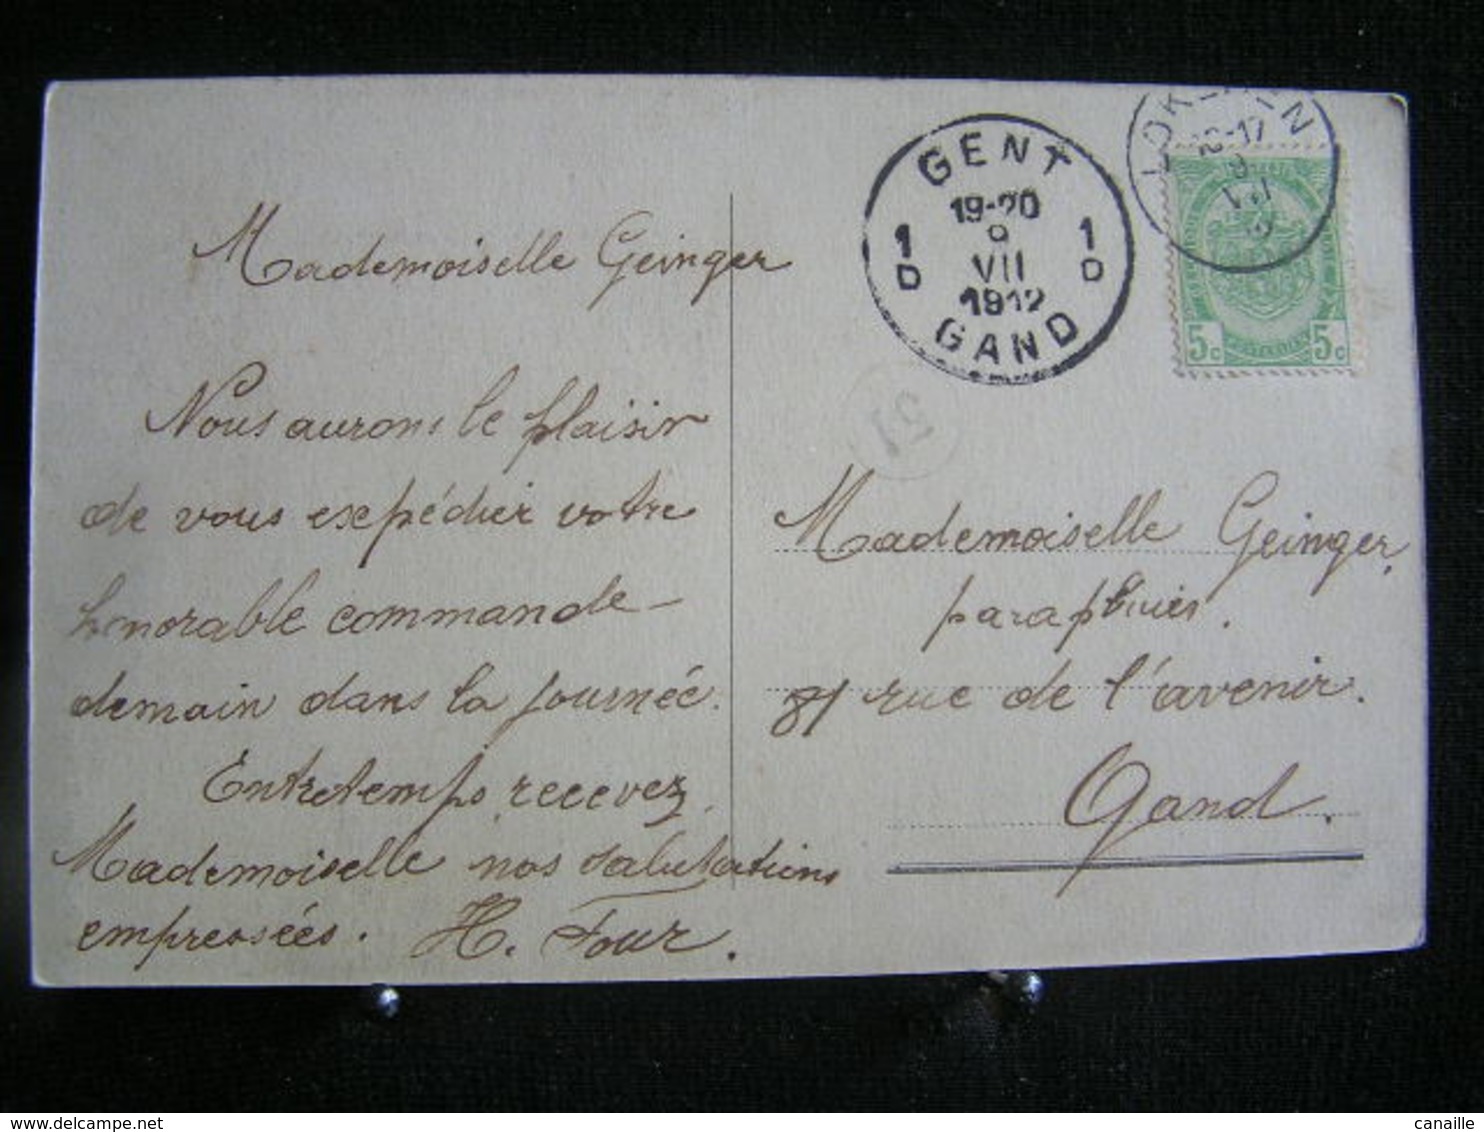 Mademoiselle Geinger
Nous aurons le plaisir
de vous expédier votre
honorable commande
demain dans la journée.
Entretemps recevez,
Mademoiselle nos salutations
empressées. H. Four.
GENT
19-20
9
VII
1912
1 D
1 D
GAND
LOKEREN
VII
5c 5c
51
Mademoiselle Geinger,
parapluies.
81 rue de l'avenir.
Gand.
canaille